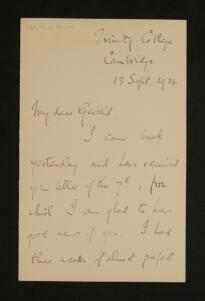 Trinity College
Cambridge
13 Sept. 1904
My dear Gerald,
I came back
yesterday and have received
your letter of the 7th, from
which I am glad to have
good news of you. I had
three weeks of almost perfect